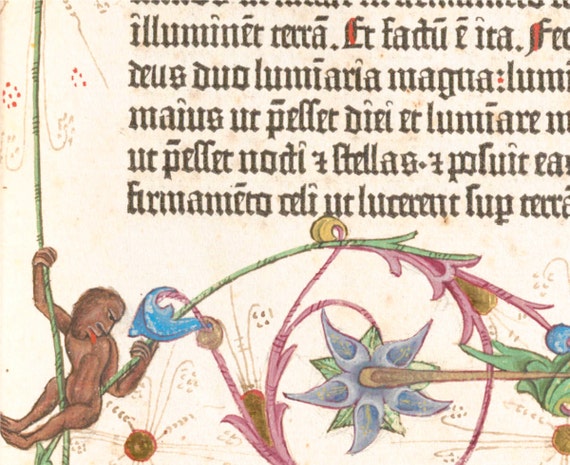 illuminēt terrā. Et factū ē ita. Fec
deus duo lumīaria magna: lumi
maius ut p̄esset diei et lumīare m
ut p̄esset nocti ⁊ stellas · ⁊ posuit eas
firmamēto celi ut lucerent sup terrā